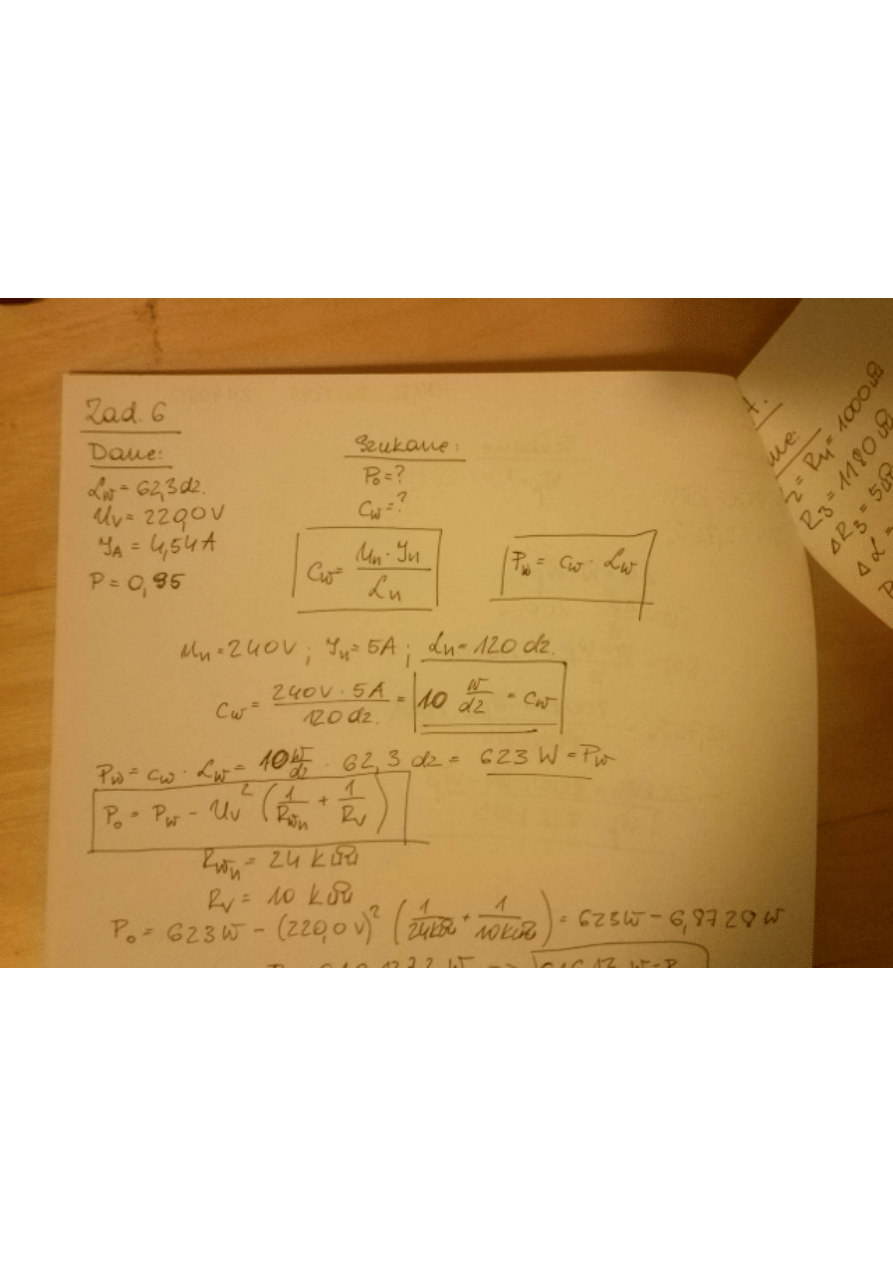 Zad. 6
Dane:
Szukane:
αw = 62,3 dz.
P₀ = ?
Uv = 220,0 V
Cw = ?
IA = 4,54 A
Cw = Un · In / αn
Pw = Cw · αw
P = 0,95
Un = 240V ; In = 5A ; αn = 120 dz.
Cw = 240V · 5A / 120 dz. = 10 W/dz = Cw
Pw = Cw · αw = 10 W/dz · 62,3 dz = 623 W = Pw
P₀ = Pw - Uv² (1/Rwn + 1/Rv)
Rwn = 24 kΩ
Rv = 10 kΩ
P₀ = 623W - (220,0V)² (1/24kΩ + 1/10kΩ) = 623W - 6,8728 W
R4 = 1000 Ω
R3 = 1180 Ω
ΔR3 = 5Ω
Δα =